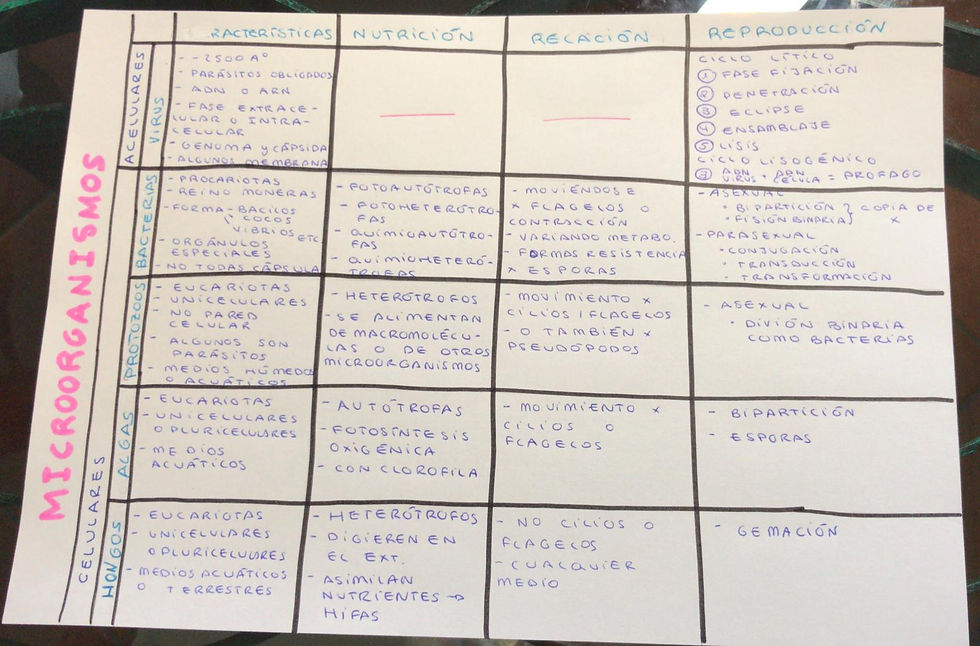 MICROORGANISMOS
RACTERÍSTICAS
NUTRICIÓN
RELACIÓN
REPRODUCCIÓN
ACELULARES
VIRUS
- -2500 Aº
- PARÁSITOS OBLIGADOS
- ADN O ARN
- FASE EXTRACE-
LULAR O INTRA-
CELULAR
- GENOMA Y CÁPSIDA
- ALGUNOS MEMBRANA
CICLO LÍTICO
① FASE FIJACIÓN
② PENETRACIÓN
③ ECLIPSE
④ ENSAMBLAJE
⑤ LISIS
CICLO LISOGÉNICO
ADN VIRUS + ADN CELULA = PROFAGO
CELULARES
BACTERIAS
- PROCARIOTAS
- REINO MONERAS
- FORMA - BACILOS
COCOS
VIBRIOS ETC
- ORGÁNULOS
ESPECIALES
- NO TODAS CÁPSULA
- FOTOAUTÓTROFAS
- FOTOHETERÓTRO-
FAS
- QUIMIOAUTÓTRO-
FAS
- QUIMIOHETERÓ-
TROFAS
- MOVIÉNDOSE
x FLAGELOS O
CONTRACCIÓN
- VARIANDO METABO.
- FORMAS RESISTENCIA
x ESPORAS
- ASEXUAL
• BIPARTICIÓN } COPIA DE
• FISIÓN BINARIA } x
- PARASEXUAL
• CONJUGACIÓN
• TRANSDUCCIÓN
• TRANSFORMACIÓN
PROTOZOOS
- EUCARIOTAS
- UNICELULARES
- NO PARED
CELULAR
- ALGUNOS SON
PARÁSITOS
- MEDIOS HÚMEDOS
O ACUÁTICOS
- HETERÓTROFOS
- SE ALIMENTAN
DE MACROMOLÉCU-
LAS O DE OTROS
MICROORGANISMOS
- MOVIMIENTO x
CILIOS / FLAGELOS
- O TAMBIÉN x
PSEUDÓPODOS
- ASEXUAL
• DIVIÓN BINARIA
COMO BACTERIAS
ALGAS
- EUCARIOTAS
- UNICELULARES
O PLURICELULARES
- MEDIOS
ACUÁTICOS
- AUTÓTROFAS
- FOTOSÍNTESIS
OXIGÉNICA
- CON CLOROFILA
- MOVIMIENTO x
CILIOS O
FLAGELOS
- BIPARTICIÓN
- ESPORAS
HONGOS
- EUCARIOTAS
- UNICELULARES
O PLURICELULARES
- MEDIOS ACUÁTICOS
O TERRESTRES
- HETERÓTROFOS
- DIGIEREN EN
EL EXT.
- ASIMILAN
NUTRIENTES →
HIFAS
- NO CILIOS O
FLAGELOS
- CUALQUIER
MEDIO
- GEMACIÓN